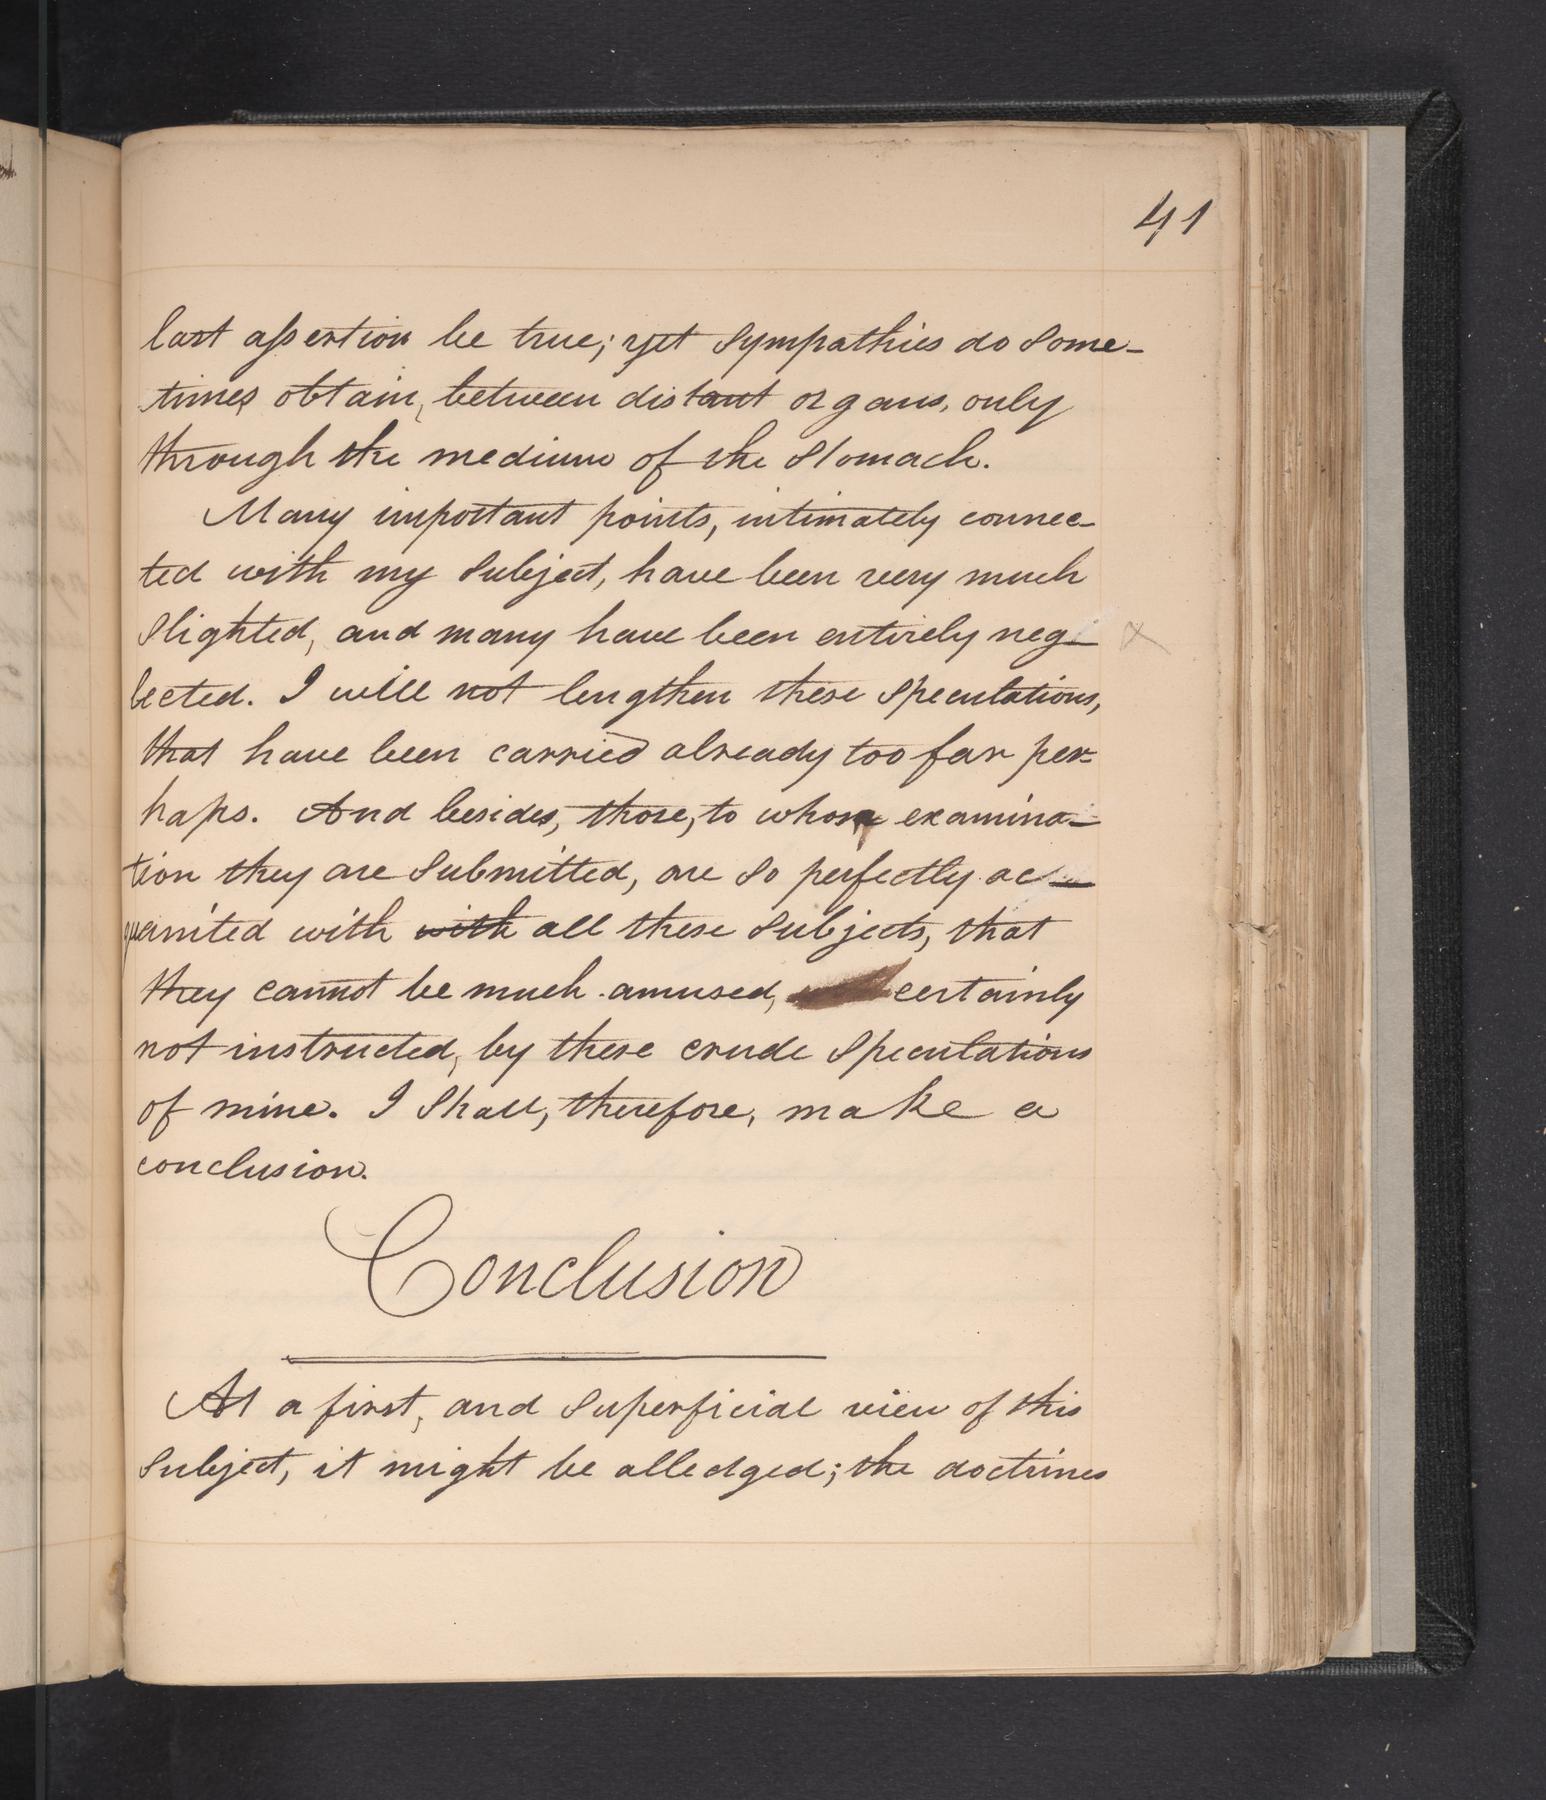 41
last assertion be true; yet sympathies do some-
times obtain, between distant organs, only
through the medium of the stomach.
Many important points, intimately connec-
ted with my subject, have been very much
slighted, and many have been entirely neg-
lected. I will not lengthen these speculations,
that have been carried already too far per-
haps. And besides, those, to whose examina-
tion they are submitted, are so perfectly ac-
quainted with with all these subjects, that
they cannot be much amused, certainly
not instructed, by these crude speculations
of mine. I shall, therefore, make a
conclusion.
Conclusion
At a first, and superficial view of this
subject, it might be alledged; the doctrines